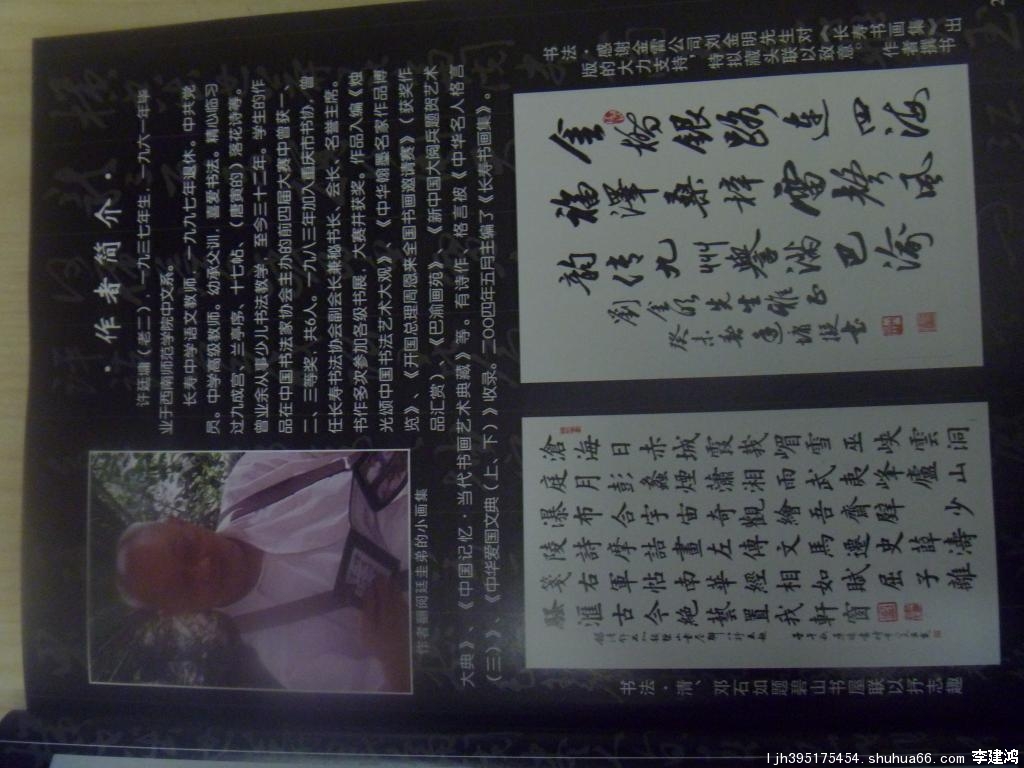 ·作者简介·
许廷墉(老二)，一九三七年生，一九六一年毕
业于西南师范学院中文系。
长寿中学语文教师，一九九七年退休。中共党
员。中学高级教师，幼承父训，喜爱书法。精心临习
过九成宫、兰亭序、十七帖、(唐寅的)落花诗等。
曾业余从事少儿书法教学，至今三十二年。学生的作
品在中国书法家协会主办的前四届大赛中曾获一、
二、三等奖，共6人。一九八三年加入重庆市书协，曾
任长寿书法协会副会长兼秘书长、会长、名誉主席。
书作多次参加各级书展、大赛并获奖。作品入编《烛
光颂中国书法艺术大观》《中华翰墨名家作品博
览》、《开国总理周恩来全国书画邀请赛》(获奖作
品汇赏)、《巴渝画苑》、《新中国大阅兵题贺艺术
大典》、《中国记忆·当代书画艺术典藏》等。有诗作、格言被《中华名人格言
(三)》、《中华爱国文典(上、下)》收录。二00四年五月主编了《长寿书画集》。
作者翻阅廷圭弟的小画集
书法·感谢金雷公司刘金明先生对《长寿书画集》出
版的大力支持，特拟藏头联以致意。作者撰书
金橋銀路連四海
福澤桑梓雷聲風
韵传九州譽满巴渝
劉金明先生雅正
癸未春廷墉撰书
书法·清、邓石如题碧山书屋联以抒志趣
滄海日赤城霞峨嵋雪巫峽雲洞
庭月彭蠡煙瀟湘雨武夷峰廬山
瀑布合宇宙奇觀繪吾齋壁少
陵詩摩詰畫左傳文馬遷史薛濤
箋右軍帖南華經相如賦屈子離
騷匯古今絕藝置我軒窗
ljh395175454.shuhua66.com 李建鸿